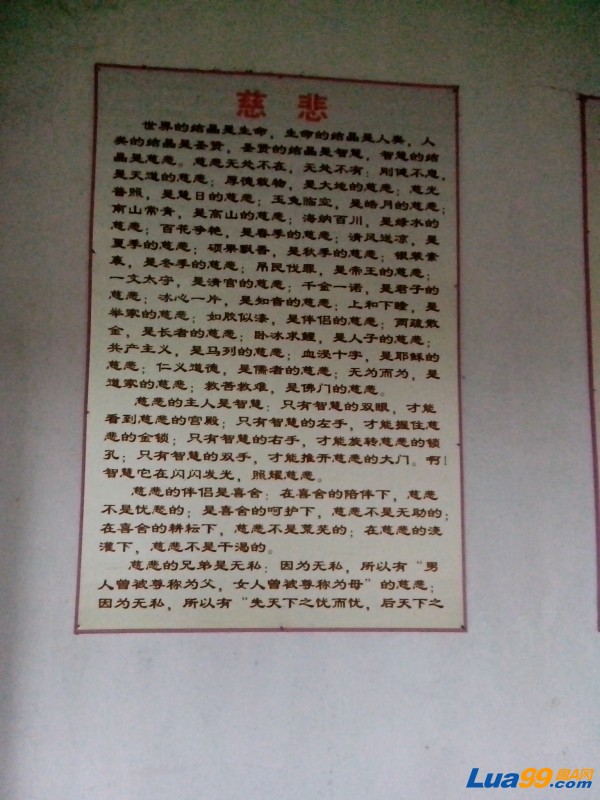 慈悲
世界的结晶是生命，生命的结晶是人类，人
类的结晶是圣贤，圣贤的结晶是智慧，智慧的结
晶是慈悲。慈悲无处不在，无处不有：刚健不息，
是天道的慈悲；厚德载物，是大地的慈悲；慈光
普照，是慧日的慈悲；玉兔临空，是皓月的慈悲；
南山常青，是高山的慈悲；海纳百川，是绿水的
慈悲；百花争艳，是春季的慈悲；清风送凉，是
夏季的慈悲；硕果飘香，是秋季的慈悲；银装素
裹，是冬季的慈悲；吊民伐罪，是帝王的慈悲；
一文太守，是清官的慈悲；千金一诺，是君子的
慈悲；冰心一片，是知音的慈悲；上和下睦，是
举家的慈悲；如胶似漆，是伴侣的慈悲；两疏散
金，是长者的慈悲；卧冰求鲤，是人子的慈悲；
共产主义，是马列的慈悲；血浸十字，是耶稣的
慈悲；仁义道德，是儒者的慈悲；无为而为，是
道家的慈悲；救苦救难，是佛门的慈悲。
慈悲的主人是智慧：只有智慧的双眼，才能
看到慈悲的宫殿；只有智慧的左手，才能握住慈
悲的金锁；只有智慧的右手，才能旋转慈悲的锁
孔；只有智慧的双手，才能推开慈悲的大门。啊！
智慧它在闪闪发光，照耀慈悲。
慈悲的伴侣是喜舍：在喜舍的陪伴下，慈悲
不是忧愁的；是喜舍的呵护下，慈悲不是无助的；
在喜舍的耕耘下，慈悲不是荒芜的；在慈悲的浇
灌下，慈悲不是干渴的。
慈悲的兄弟是无私：因为无私，所以有“男
人曾被尊称为父，女人曾被尊称为母”的慈悲；
因为无私，所以有“先天下之忧而忧，后天下之
Lua99.com